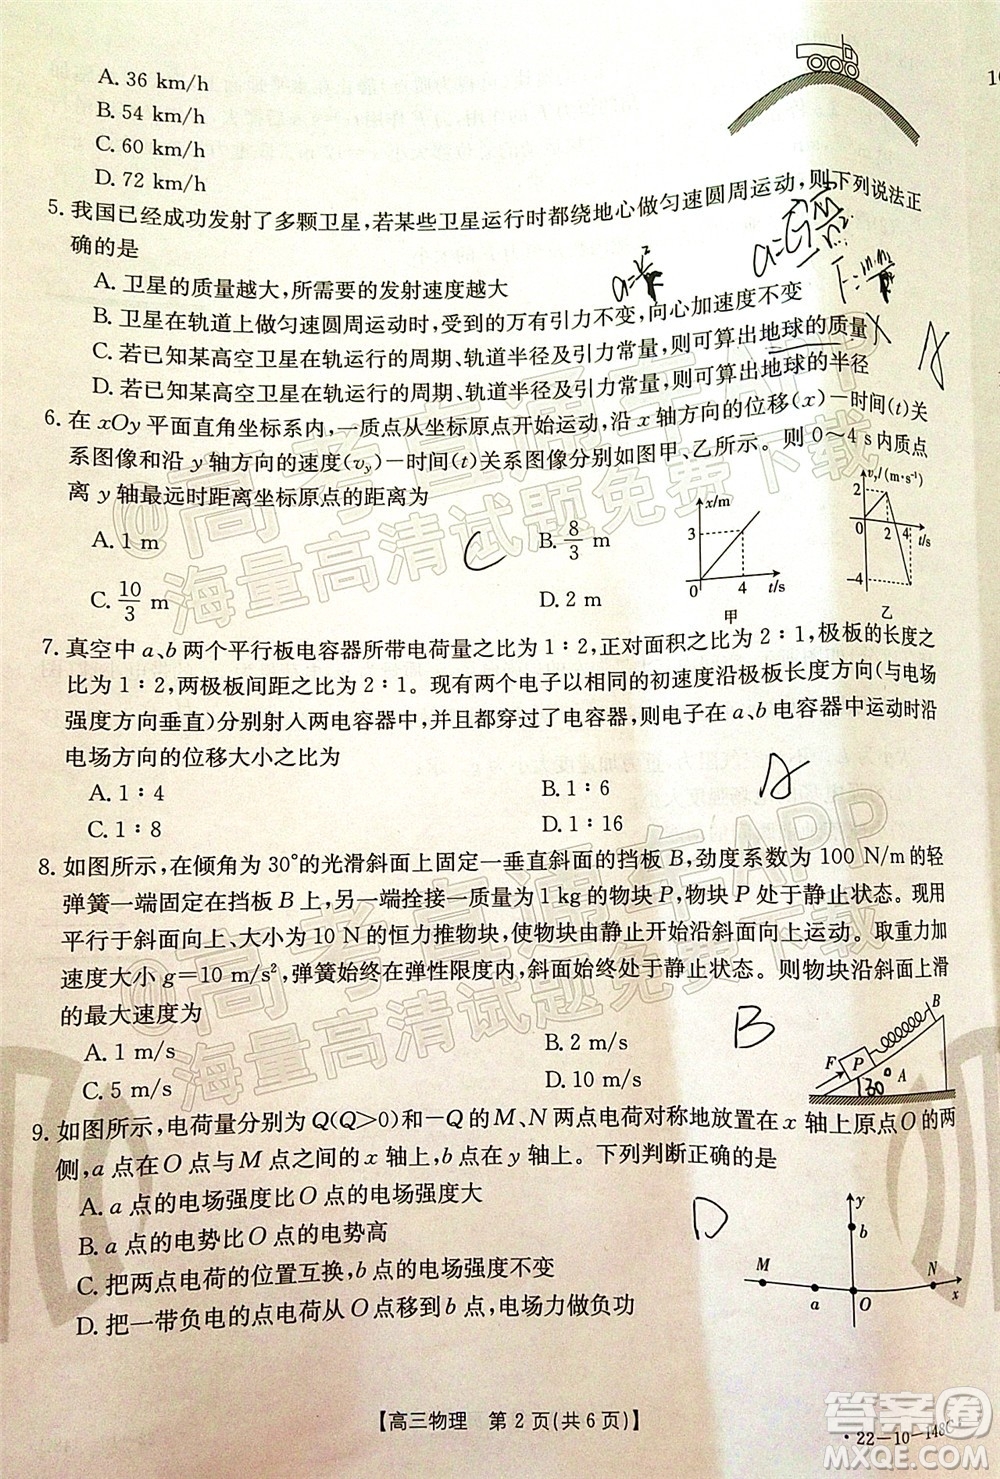 A. 36 km/h
B. 54 km/h
C. 60 km/h
D. 72 km/h
5. 我国已经成功发射了多颗卫星,若某些卫星运行时都绕地心做匀速圆周运动,则下列说法正
确的是
A. 卫星的质量越大,所需要的发射速度越大
B. 卫星在轨道上做匀速圆周运动时,受到的万有引力不变,向心加速度不变
C. 若已知某高空卫星在轨运行的周期、轨道半径及引力常量,则可算出地球的质量
D. 若已知某高空卫星在轨运行的周期、轨道半径及引力常量,则可算出地球的半径
A
6. 在 xOy 平面直角坐标系内,一质点从坐标原点开始运动,沿 x 轴方向的位移(x)—时间(t)关
系图像和沿 y 轴方向的速度(vy)—时间(t)关系图像分别如图甲、乙所示。则 0~4 s 内质点
离 y 轴最远时距离坐标原点的距离为
A. 1 m
B. 8/3 m
C
C. 10/3 m
D. 2 m
x/m
3
0
4
t/s
甲
vy/(m·s⁻¹)
2
0
2
4
t/s
−4
乙
7. 真空中 a、b 两个平行板电容器所带电荷量之比为 1∶2,正对面积之比为 2∶1,极板的长度之
比为 1∶2,两极板间距之比为 2∶1。现有两个电子以相同的初速度沿极板长度方向(与电场
强度方向垂直)分别射入两电容器中,并都穿过了电容器,则电子在 a、b 电容器中运动时沿
电场方向的位移大小之比为
A. 1∶4
B. 1∶6
A
C. 1∶8
D. 1∶16
8. 如图所示,在倾角为 30°的光滑斜面上固定一垂直斜面的挡板 B,劲度系数为 100 N/m 的轻
弹簧一端固定在挡板 B 上,另一端拴接一质量为 1 kg 的物块 P,物块 P 处于静止状态。现用
平行于斜面向上、大小为 10 N 的恒力推物块,使物块由静止开始沿斜面向上运动。取重力加
速度大小 g=10 m/s²,弹簧始终在弹性限度内,斜面始终处于静止状态。则物块沿斜面上滑
的最大速度为
B
A. 1 m/s
B. 2 m/s
C. 5 m/s
D. 10 m/s
F
P
B
A
30°
9. 如图所示,电荷量分别为 Q(Q>0)和−Q 的 M、N 两点电荷对称地放置在 x 轴上原点 O 的两
侧,a 点在 O 点与 M 点之间的 x 轴上,b 点在 y 轴上。下列判断正确的是
A. a 点的电场强度比 O 点的电场强度大
B. b 点的电势比 O 点的电势高
C. 把两点电荷的位置互换,b 点的电场强度不变
D. 把一带负电的点电荷从 O 点移到 b 点,电场力做负功
D
y
b
M
a
O
N
x
【高三物理 第 2 页(共 6 页)】
·22−10−148C·
@高考直通车APP
海量高清试题免费下载
@高考直通车APP
海量高清试题免费下载
答案圈
MXQE.COM